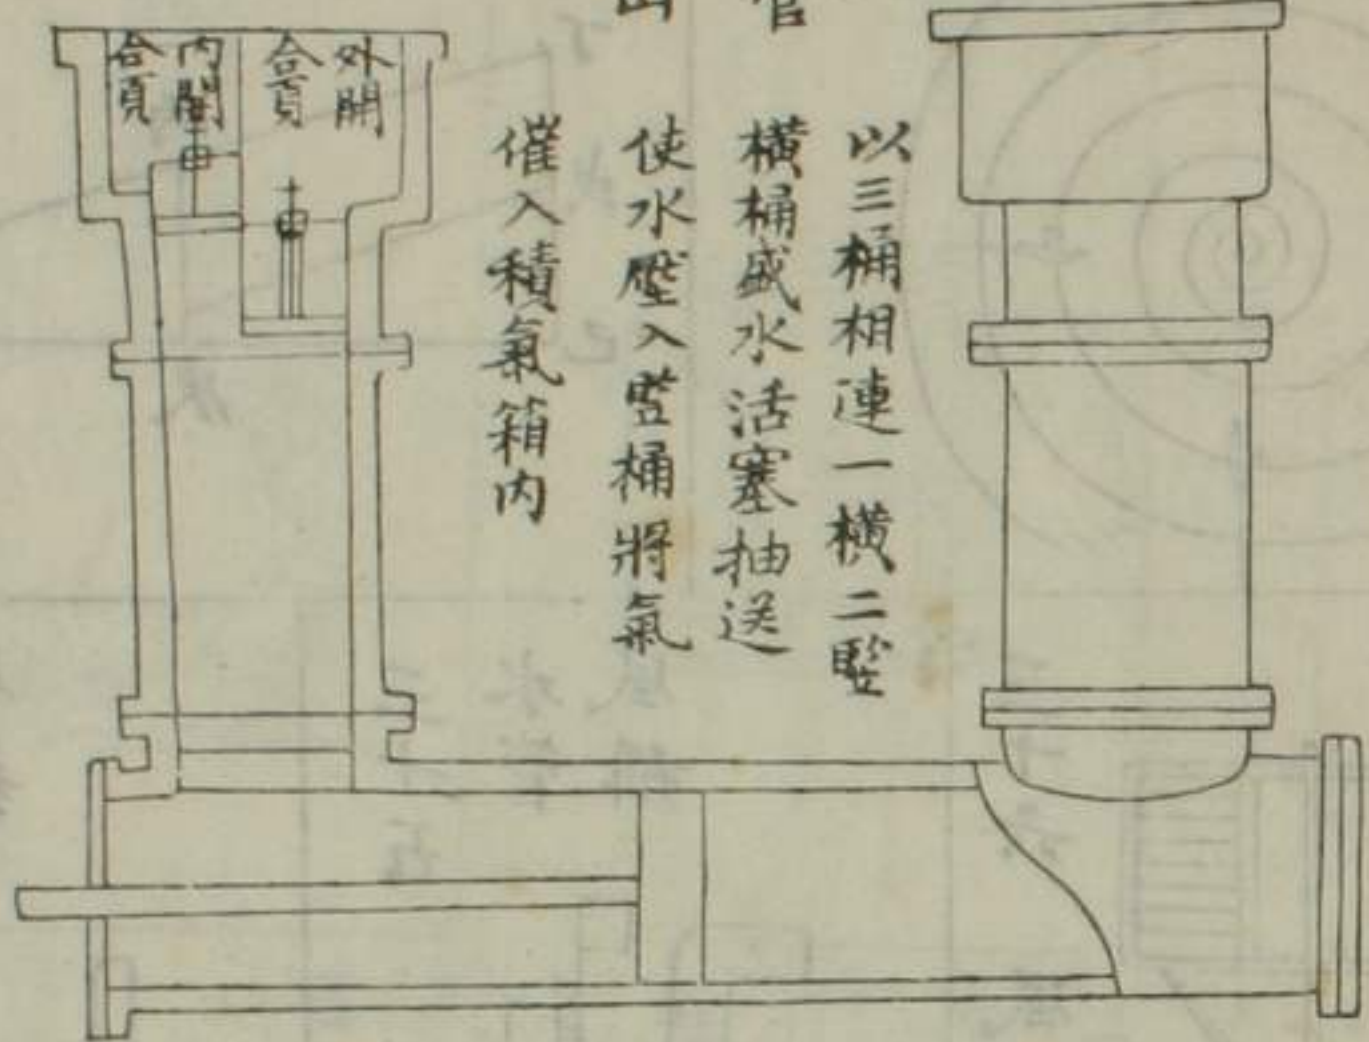 管
以三桶相連一橫二竪
橫桶盛水活塞抽送
使水壓入竪桶將氣
催入積氣箱内
外開
合頁
内開
合頁